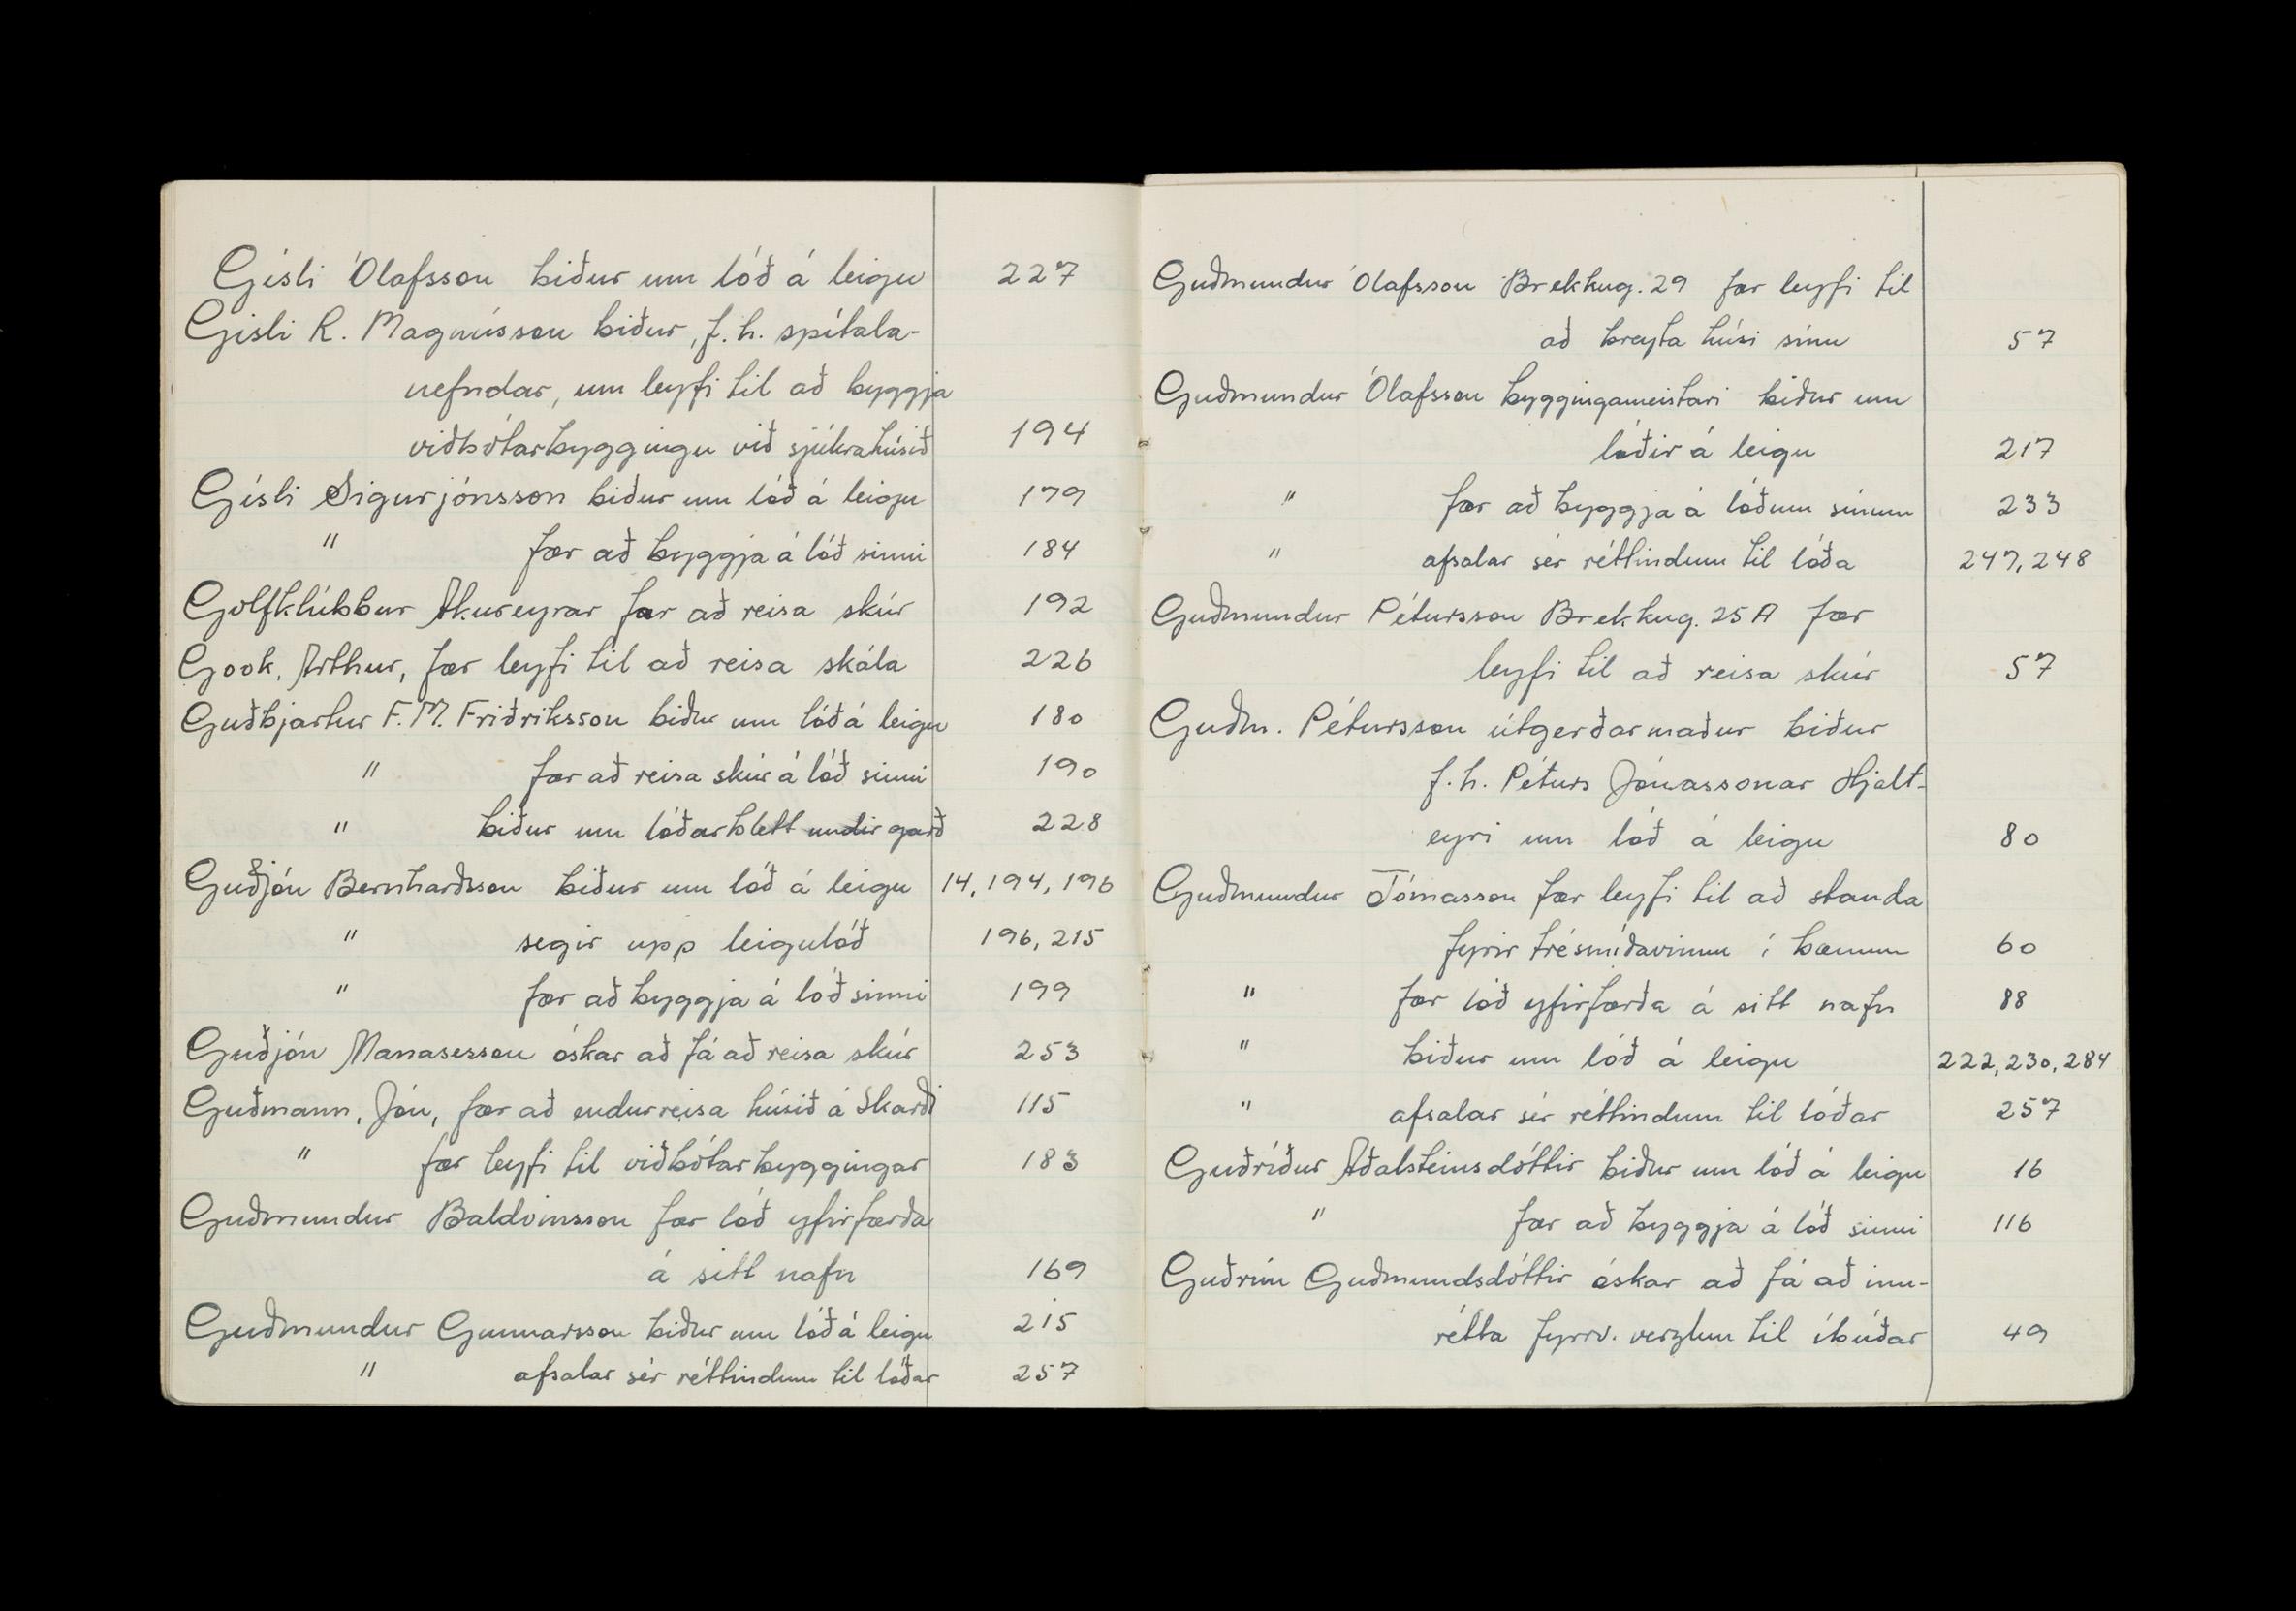 Gísli Ólafsson biður um lóð á leigu 227
Gísli R. Magnússon biður, f.h. spítala-
nefndar, um leyfi til að byggja
viðbótarbyggingu við sjúkrahúsið 194
Gísli Sigurjónsson biður um lóð á leigu 179
" fær að byggja á lóð sinni 184
Golfklúbbur Akureyrar fær að reisa skúr 192
Gook, Arthur, fær leyfi til að reisa skála 226
Guðbjartur F. M. Friðriksson biður um lóð á leigu 180
" fær að reisa skúr á lóð sinni 190
" biður um lóðarblett undir garð 228
Guðjón Bernharðsson biður um lóð á leigu 14, 194, 196
" segir upp leigulóð 196, 215
" fær að byggja á lóð sinni 199
Guðjón Manasesson óskar að fá að reisa skúr 253
Guðmann, Jón, fær að endurreisa húsið á Skarði 115
" fær leyfi til viðbótarbyggingar 183
Guðmundur Baldvinsson fær lóð yfirfærða
á sitt nafn 169
Guðmundur Gunnarsson biður um lóð á leigu 215
" afsalar sér réttindum til lóðar 257
Guðmundur Ólafsson Brekkug. 29 fær leyfi til
að breyta húsi sínu 57
Guðmundur Ólafsson byggingameistari biður um
lóðir á leigu 217
" fær að byggja á lóðum sínum 233
" afsalar sér réttindum til lóða 247, 248
Guðmundur Pétursson Brekkug. 25 A fær
leyfi til að reisa skúr 57
Guðm. Pétursson útgerðarmaður biður
f.h. Péturs Jónassonar Hjalt-
eyri um lóð á leigu 80
Guðmundur Tómasson fær leyfi til að standa
fyrir trésmíðavinnu í bænum 60
" fær lóð yfirfærða á sitt nafn 88
" biður um lóð á leigu 222, 230, 284
" afsalar sér réttindum til lóðar 257
Guðríður Aðalsteinsdóttir biður um lóð á leigu 16
" fær að byggja á lóð sinni 116
Guðrún Guðmundsdóttir óskar að fá að inn-
rétta fyrrv. verzlun til íbúðar 49